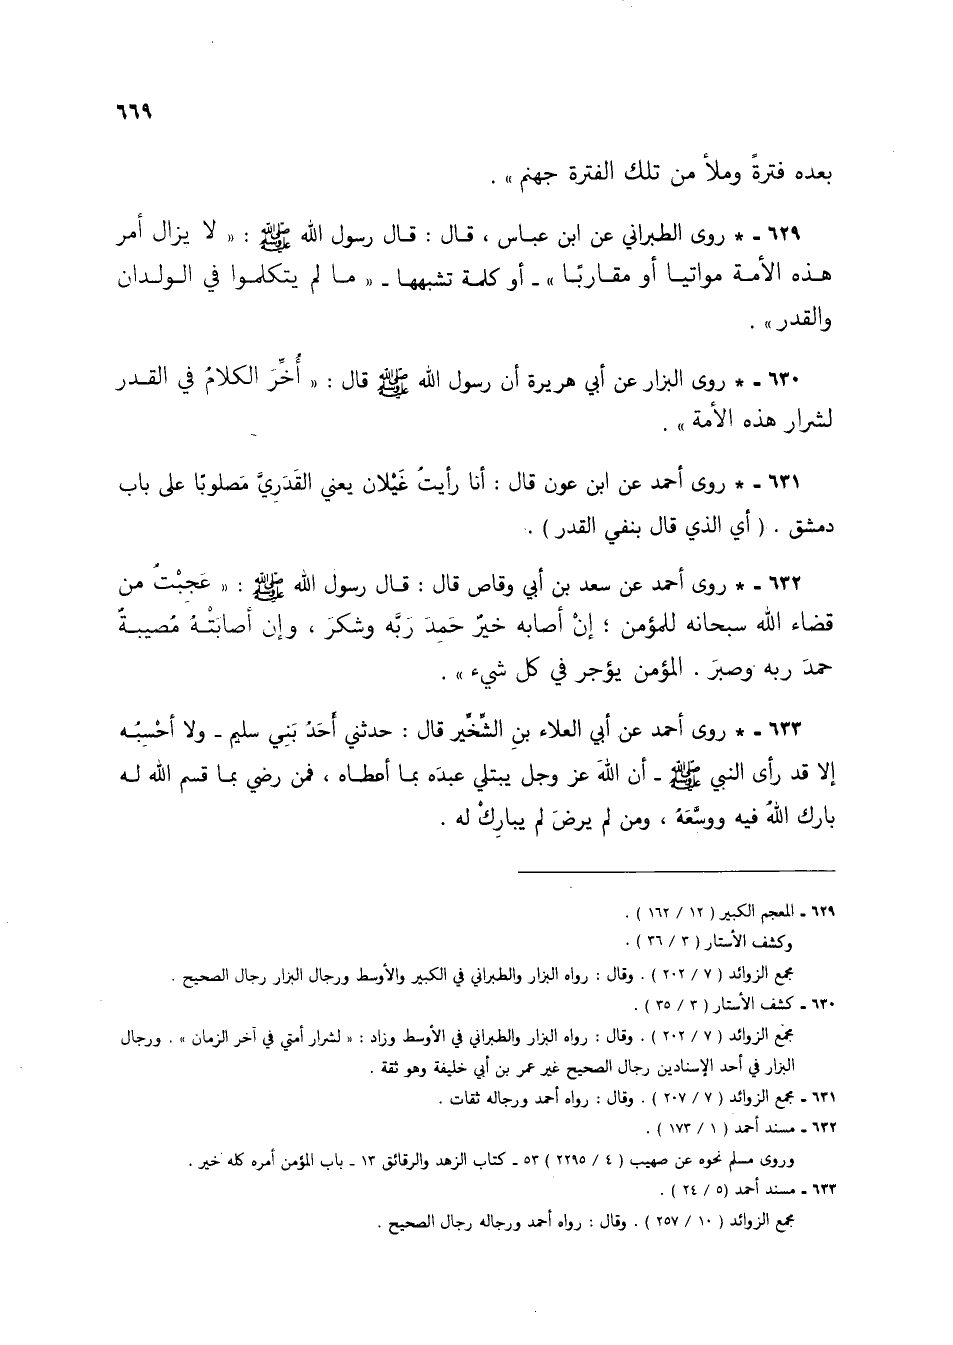 ٦٦٩
بعده فترةً وملأ من تلك الفترة جهنم » .
٦٢٩ ـ * روى الطبراني عن ابن عباس ، قال : قال رسول الله ﷺ : « لا يزال أمر
هذه الأمة مواتيا أو مقاربًا » ـ أو كلمة تشبهها ـ « ما لم يتكلموا في الولدان
والقدر » .
٦٣٠ ـ * روى البزار عن أبي هريرة أن رسول الله ﷺ قال : « أُخِّرَ الكلامُ في القدر
لشرار هذه الأمة » .
٦٣١ ـ * روى أحمد عن ابن عون قال : أنا رأيتُ غَيْلان يعني القَدَرِيَّ مَصلوبًا على باب
دمشق . ( أي الذي قال بنفي القدر ) .
٦٣٢ ـ * روى أحمد عن سعد بن أبي وقاص قال : قال رسول الله ﷺ : « عَجِبْتُ من
قضاء الله سبحانه للمؤمن ؛ إنْ أصابه خيرٌ حَمِدَ رَبَّه وشكرَ ، وإن أصابَتْهُ مُصيبةٌ
حمدَ ربه وصبرَ . المؤمن يؤجر في كل شيء » .
٦٣٣ ـ * روى أحمد عن أبي العلاء بنِ الشِّخِّيرِ قال : حدثني أَحَدُ بَنِي سليم ـ ولا أحْسِبُه
إلا قد رأى النبي ﷺ ـ أن اللهَ عز وجل يبتلي عبدَه بما أعطاه ، فمن رضي بما قسم الله له
بارك اللهُ فيه ووسَّعَهُ ، ومن لم يرضَ لم يبارِكْ له .
٦٢٩ ـ المعجم الكبير ( ١٢ / ١٦٢ ) .
وكشف الأستار ( ٣ / ٣٦ ) .
مجمع الزوائد ( ٧ / ٢٠٢ ) . وقال : رواه البزار والطبراني في الكبير والأوسط ورجال البزار رجال الصحيح .
٦٣٠ ـ كشف الأستار ( ٣ / ٣٥ ) .
مجمع الزوائد ( ٧ / ٢٠٢ ) . وقال : رواه البزار والطبراني في الأوسط وزاد : « لشرار أمتي في آخر الزمان » . ورجال
البزار في أحد الإسنادين رجال الصحيح غير عمر بن أبي خليفة وهو ثقة .
٦٣١ ـ مجمع الزوائد ( ٧ / ٢٠٧ ) . وقال : رواه أحمد ورجاله ثقات .
٦٣٢ ـ مسند أحمد ( ١ / ١٧٣ ) .
وروى مسلم نحوه عن صهيب ( ٤ / ٢٢٩٥ ) ٥٣ ـ كتاب الزهد والرقائق ١٣ ـ باب المؤمن أمره كله خير .
٦٣٣ ـ مسند أحمد (٥ / ٢٤ ) .
مجمع الزوائد ( ١٠ / ٢٥٧ ) . وقال : رواه أحمد ورجاله رجال الصحيح .